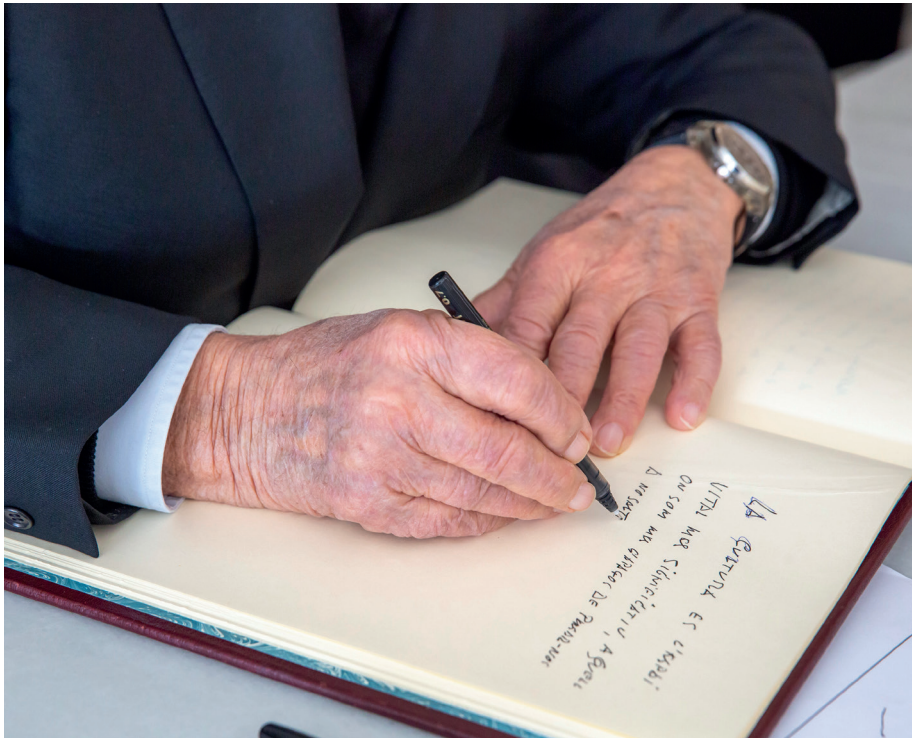 LA CULTURA ES L'ESPAI
VITAL MES SIGNIFICATIU, AQUELL
ON SOM MES CAPAÇOS DE PENSAR-NOS
A
0.7